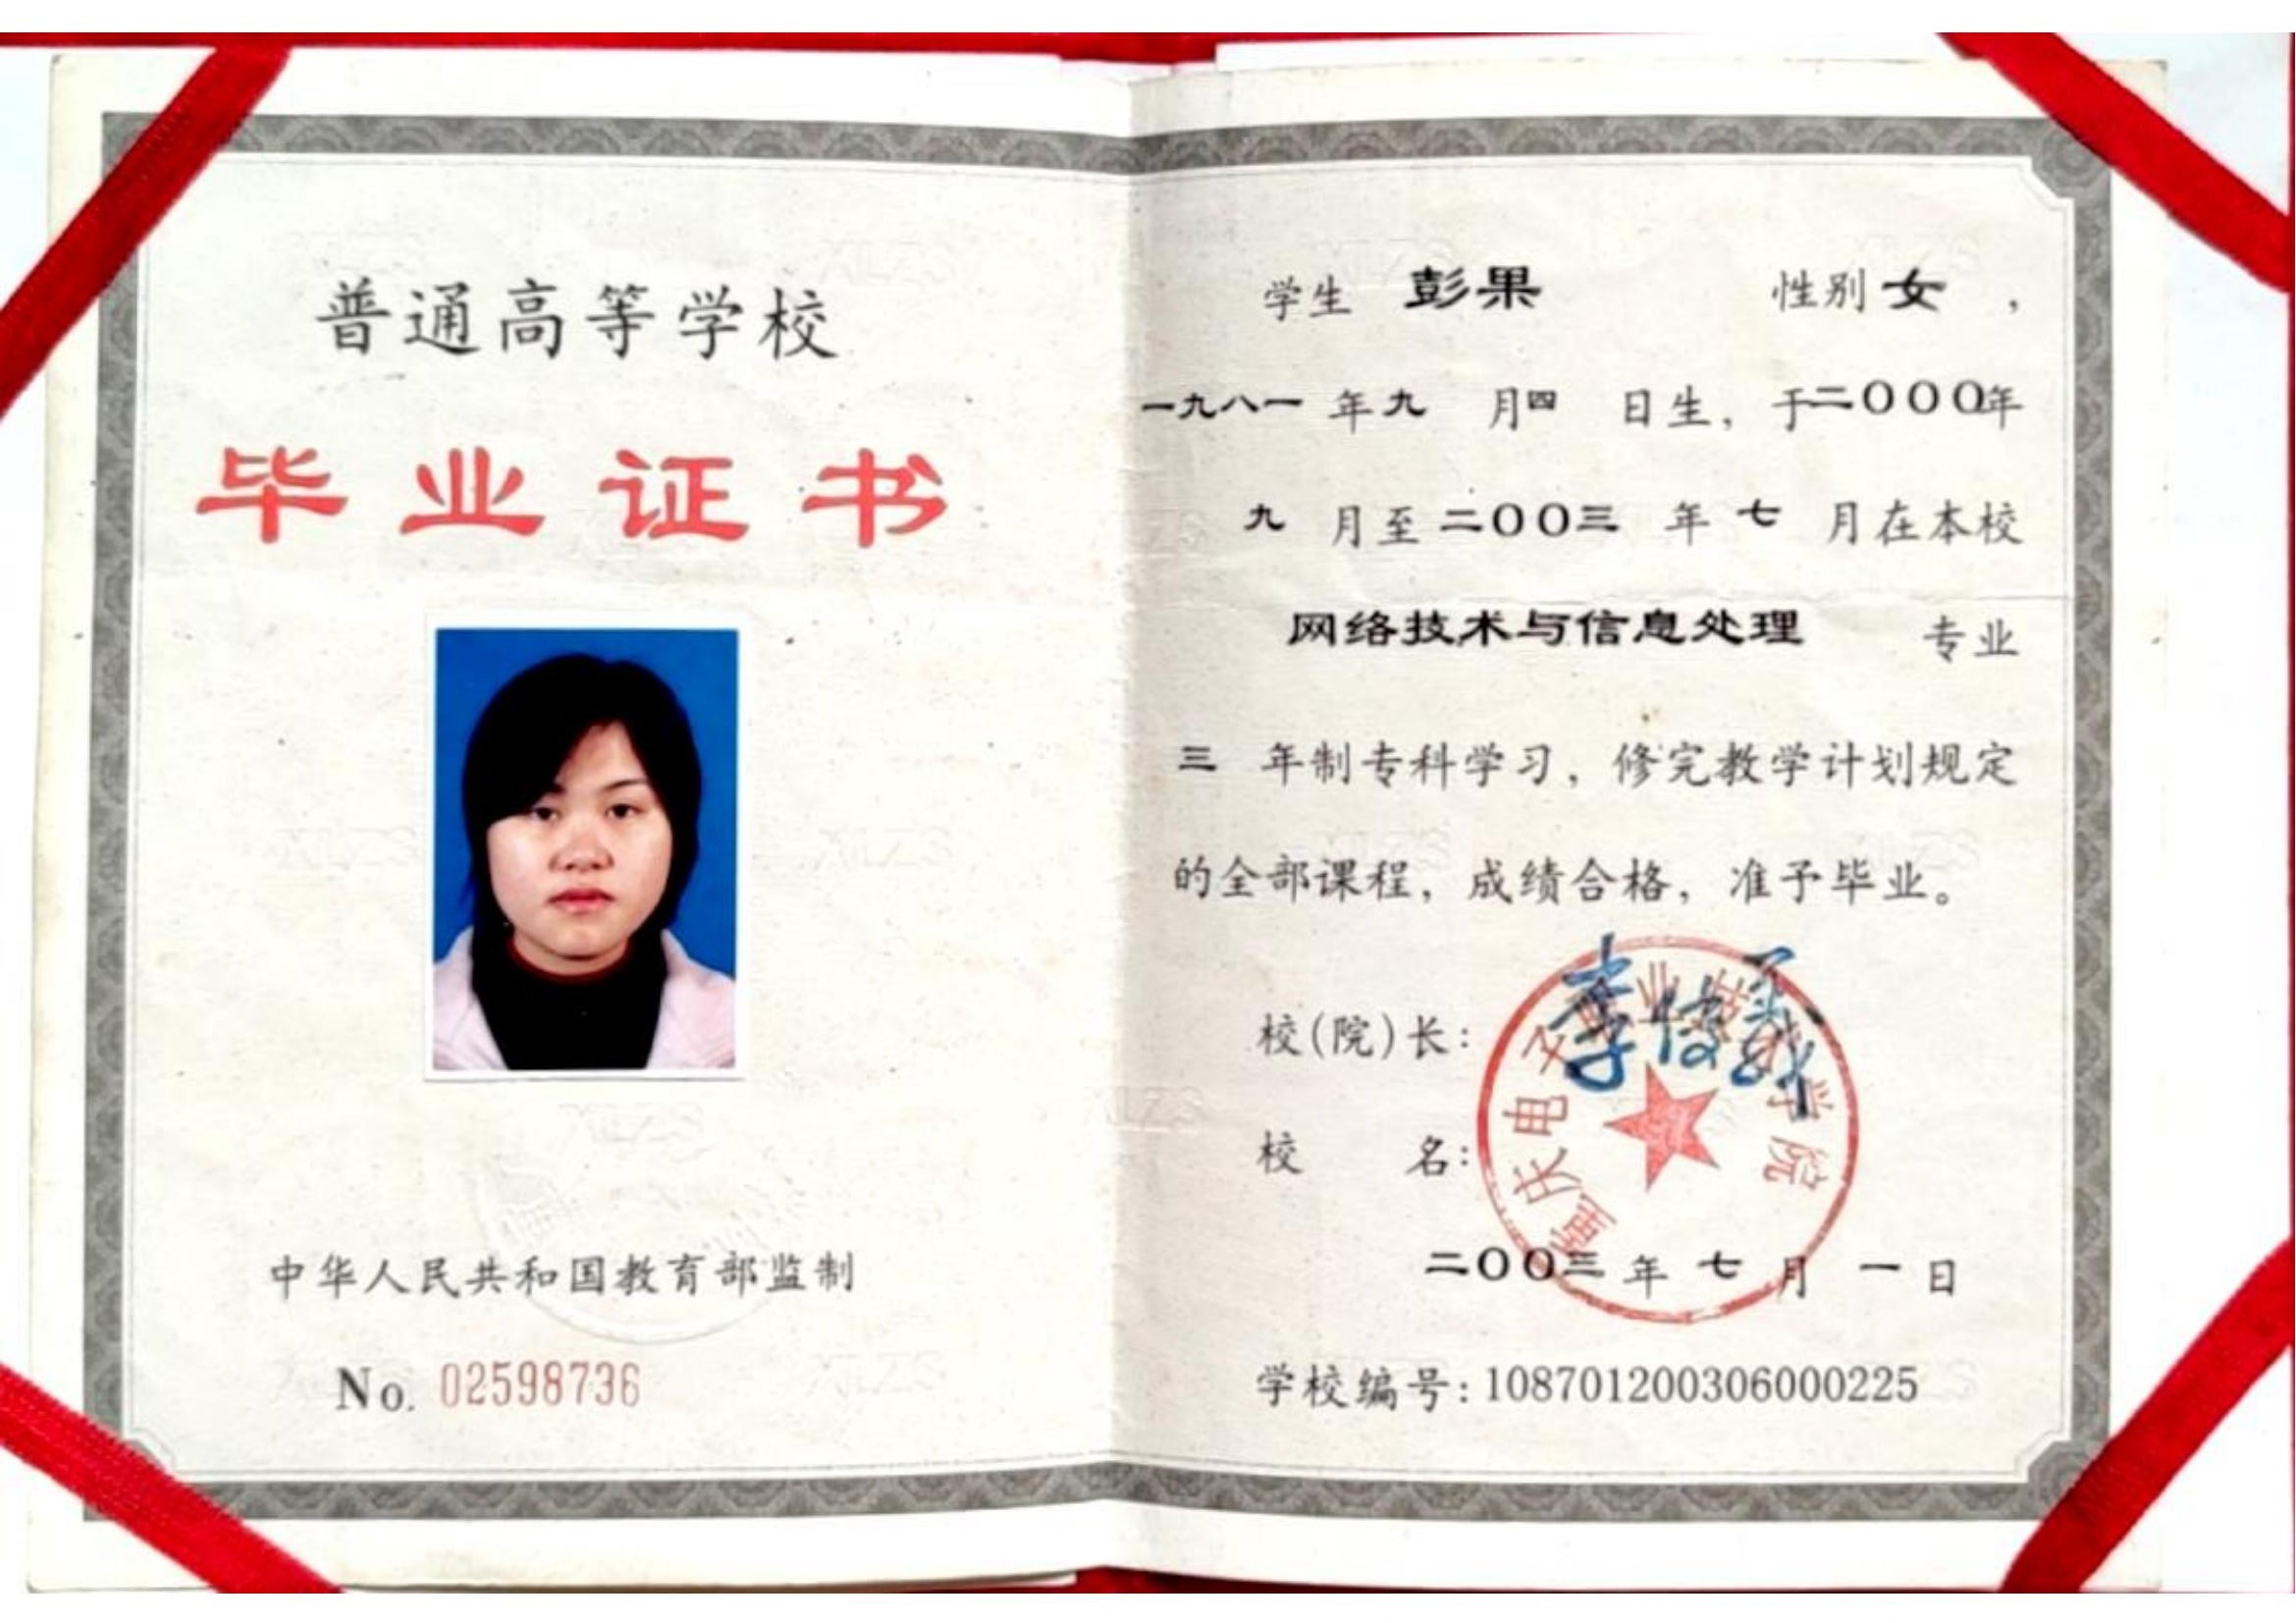 普通高等学校
毕业证书
中华人民共和国教育部监制
No. 02598736
学生 彭果 性别 女 ，
一九八一 年 九 月 四 日生，于二〇〇〇年
九 月至 二〇〇三 年 七 月在本校
网络技术与信息处理 专业
三 年制专科学习，修完教学计划规定
的全部课程，成绩合格，准予毕业。
校（院）长：
校 名：
重庆电子职业技术学院
二〇〇三 年 七 月 一 日
学校编号：108701200306000225